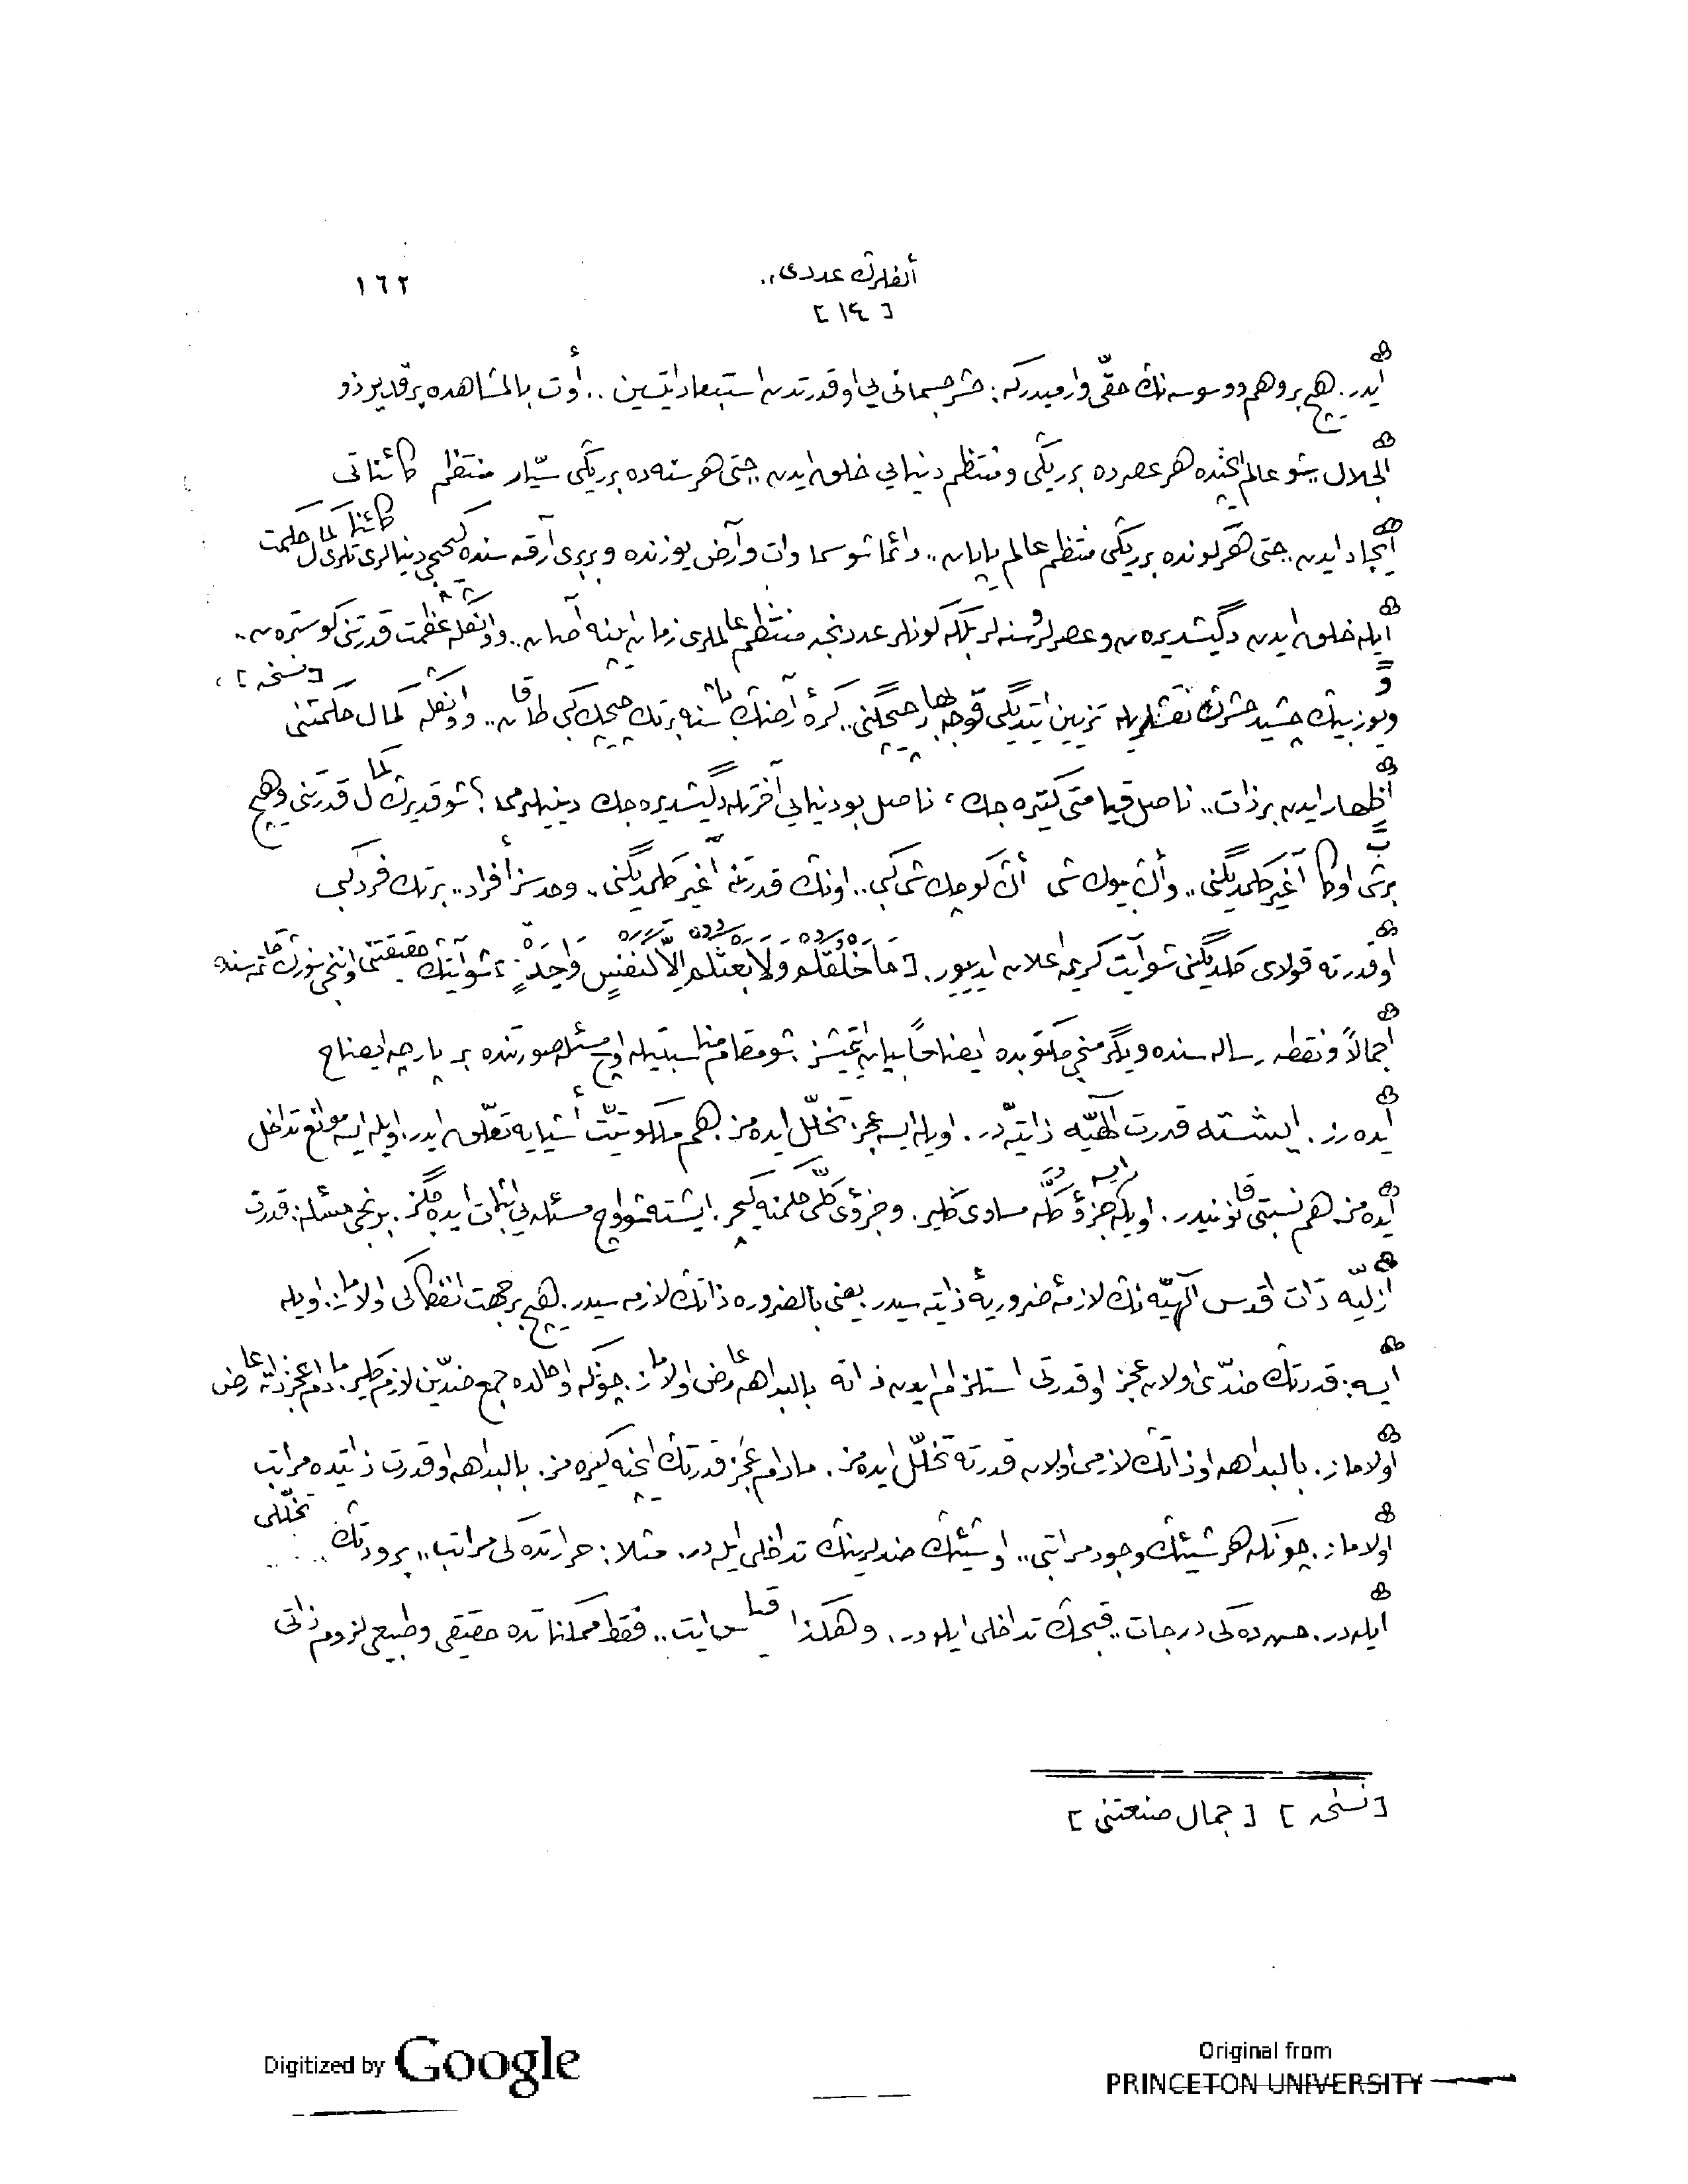 ١٦٢
ألفلرڭ عددى..
[ ١٤ ]
ايدر. هيچ بر وهم و وسوسه نڭ حقّى وارميدركه: حشر جسمانى يى او قدرتدن استبعاد ايتسين .. أوت بالمشاهده بر قدير ذو
الجلال شو عالم ايچنده هر عصرده بر ريڭى و منتظم دنيايى خلق ايدن حتى هر سنه ده بر ريڭى سيّار منتظم كائناتى
ايجاد ايدن. حتى هر كونده بر ريڭى منتظم عالم ياپان.. دائما شو سماوات و أرض يوزنده و بربرى آرقه سنده كچيجى دنيالرى كائناتلرى كمال حكمت
ايله خلق ايدن دڭيشديرەن و عصرلر و سنه لر بلكه كونلر عددنجه منتظم عالملرى زمان ايپنه آصان.. و اونڭله عظمت قدرتنى كوسترەن..
و يوز بيڭ چشيد حشرڭ نقشلريله تزيين ايتديڭى قوجه بهار چيچگنى.. كرۀ أرضڭ باشنه بر تك چيچك كبى طاقان.. و اونڭله كمال حكمتنى [نسخه]،
أظهار ايدن بر ذات.. ناصل قيامتى كتيره جك، ناصل بو دنيايى آخرتله دڭيشديره جك دينيلرمى؟ شو قديرڭ كمال قدرتنى و هيچ
بر شى اوڭا آغير كلمديگنى.. و أڭ بيوك شى أڭ كوچك شى كبى.. اونڭ قدرتنه آغير كلمديگنى.. و حدسز أفراد.. بر تك فرد كبى
او قدرته قولاى كلديگنى شو آيت كريمه اعلان ايدييور. [مَا خَلْقُكُمْ وَلَا بَعْثُكُمْ اِلَّا كَنَفْسٍ وَاحِدَةٍ] شو آيتڭ حقيقتنى اونجى سوزڭ خاتمه سنده
أجمالاً و نقطه رساله سنده و يگرمنجى مكتوبده ايضاحاً بيان ايتمشز. شو مقام مناسبتيله اوچ مسئله صورتنده بر پارچه ايضاح
أيده رز. ايشته قدرت الٓهيّه ذاتيّه در. اويله ايسه عجز تخلّل ايده مز. هم ملكوتيّت أشيايه تعلّق ايدر. اويله ايسه موانع تداخل
أيده مز. هم نسبتى قانونيدر. اويله ايسه جزؤ كلّه مساوى كلير. و جزؤى كلّى حكمنه كچر. ايشته شو اوچ مسئله يى اثبات ايده جگز. برنجى مسئله: قدرت
أزليّه ذات اقدس الٓهيّه نڭ لازمۀ ضروريۀ ذاتيه سيدر. يعنى بالضروره ذاتڭ لازمه سيدر. هيچ بر جهت انفكاكى اولاماز. اويله
أيسه: قدرتڭ ضدّى اولان عجز او قدرتى استلزام ايدن ذاته بالبداهه عارض اولاماز. چونكه او حالده جمع ضدّين لازم كلير. مادام عجز ذاته عارض
اولاماز. بالبداهه او ذاتڭ لازمى اولان قدرته تخلّل ايده مز. مادام عجز قدرتڭ ايچنه كيره مز. بالبداهه او قدرت ذاتيده مراتب
اولاماز. چونكه هر شيئڭ وجود مراتبى.. او شيئڭ ضدلرينڭ تداخلى ايله در. مثلا: حرارتده كى مراتب.. برودتڭ تخلّلى
ايله در. حسن ده كى درجات.. قبحڭ تداخلى ايله در. و هكذا قياس ايت.. فقط ممكناتده حقيقى و طبيعى لزوم ذاتى
[نسخه] [جمال صنعتنى]
Digitized by Google
Original from
PRINCETON UNIVERSITY